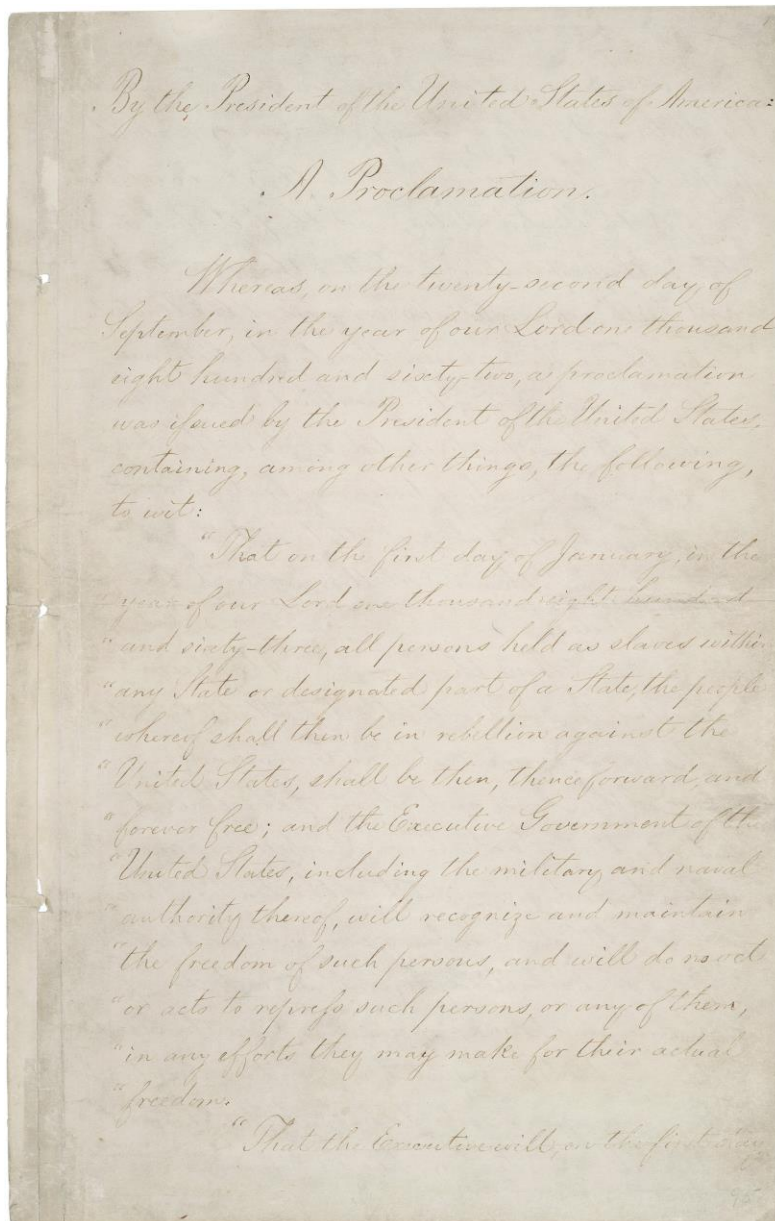 By the President of the United States of America:
A Proclamation.
Whereas, on the twenty-second day of
September, in the year of our Lord one thousand
eight hundred and sixty-two, a proclamation
was issued by the President of the United States,
containing, among other things, the following,
to wit:
"That on the first day of January, in the
year of our Lord one thousand eight hundred
" and sixty-three, all persons held as slaves within
" any State or designated part of a State, the people
" whereof shall then be in rebellion against the
" United States, shall be then, thenceforward, and
" forever free; and the Executive Government of the
" United States, including the military and naval
" authority thereof, will recognize and maintain
" the freedom of such persons, and will do no act
" or acts to repress such persons, or any of them,
" in any efforts they may make for their actual
" freedom.
"That the Executive will, on the first day
95